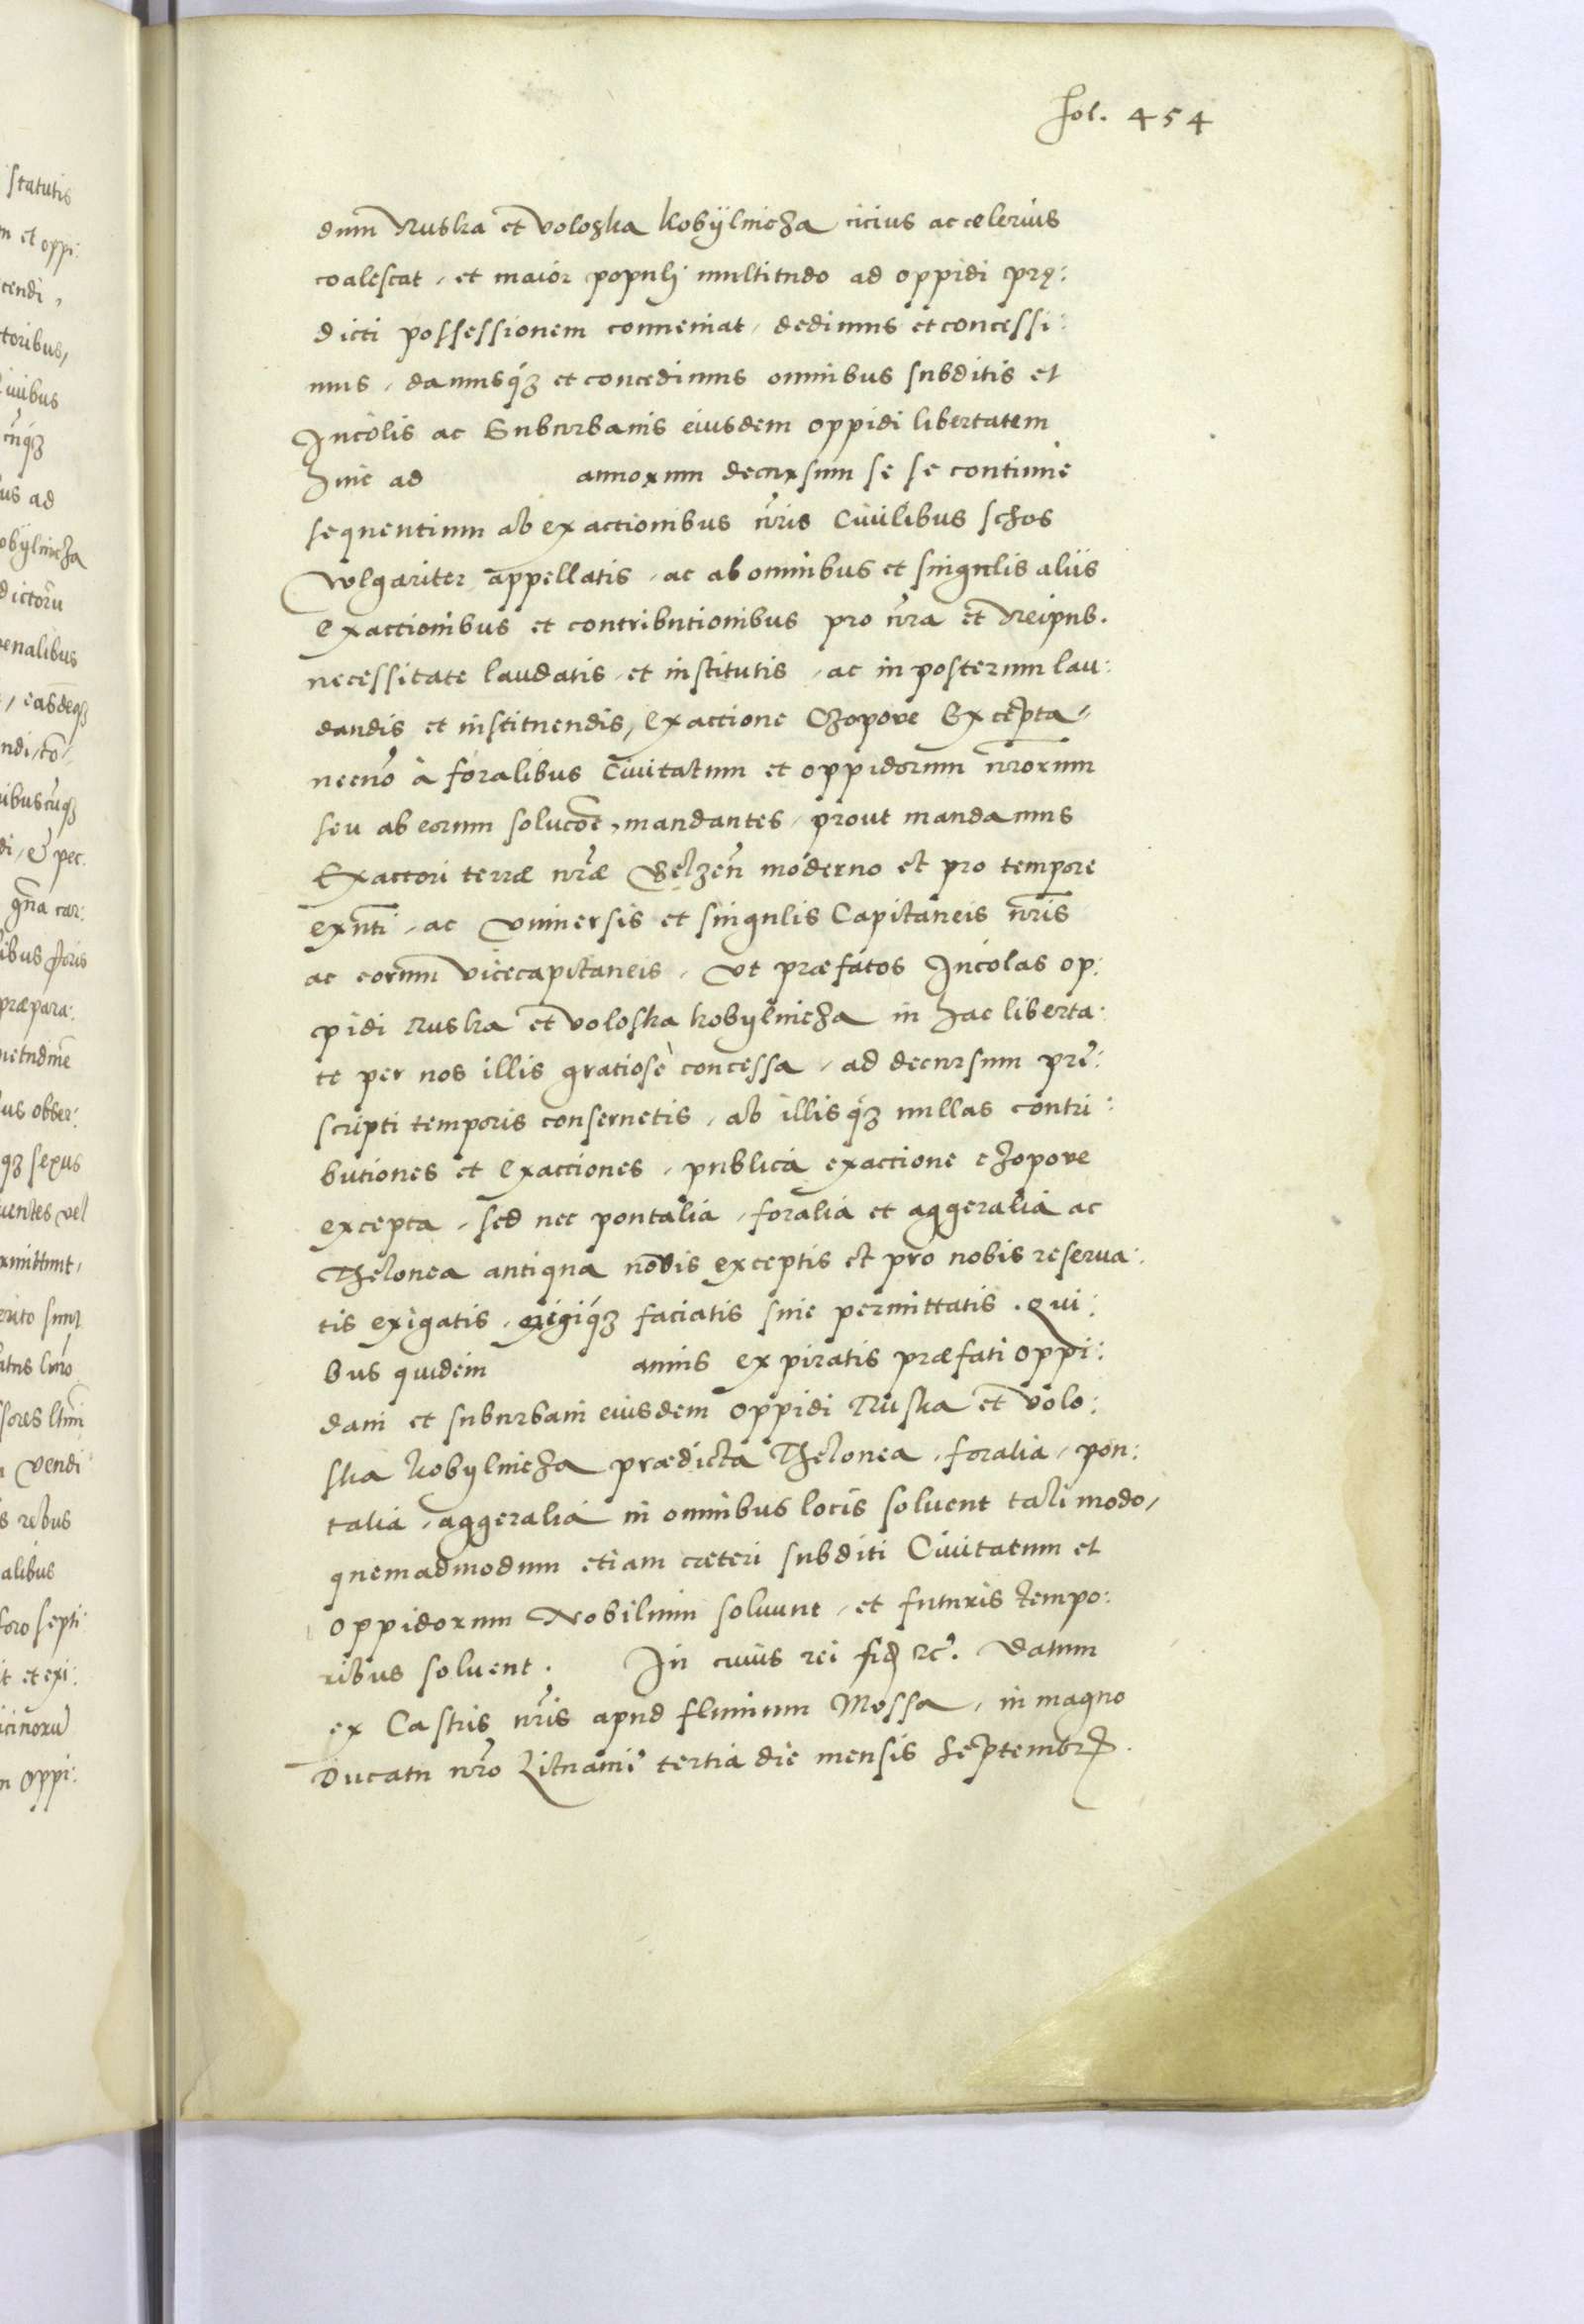 fol. 454
dum Ruska et Voloska Kobÿlnicza cicius ac celerius
coalescat, et maior populi multitudo ad oppidi prę:
dicti possessionem conueniat, dedimus et concessi:
mus, damusq́ꝫ et concedimus omnibus subditis et
Incolis ac Suburbanis eiusdem oppidi libertatem
hinc ad annorum decursum se se continuè
sequentium ab exactionibus nr̃is Ciuilibus schos
vulgariter appellatis, ac ab omnibus et singulis aliis
exactionibus et contributionibus pro nr̃a et Reipub.
necessitate laudatis et institutis, ac in posterum lau:
dandis et instituendis, exactione Czopove Excepta,
necnõ à foralibus Ciuitatum et oppidorum nr̃orum
seu ab eorum solucõe, mandantes, prout mandamus
Exactori terræ nr̃æ Belzeñ moderno et pro tempore
exñti, ac vniuersis et singulis Capitaneis nr̃is
ac eorum vicecapitaneis, Vt præfatos Incolas op:
pidi Ruska et Voloska kobylnicza in hac liberta:
te per nos illis gratiosè concessa, ad decursum præ:
scripti temporis conseruetis, ab illisq́ꝫ nullas contri:
butiones et exactiones, publica exactione czopove
excepta, sed nec pontalia, foralia et aggeralia ac
Thelonea antiqua novis exceptis et pro nobis reserua:
tis exigatis, exigiq́ꝫ faciatis siue permittatis. Qui:
bus quidem annis expiratis præfati oppi:
dani et suburbani eiusdem oppidi Ruska et Volo:
ska kobylnicza prædicta Thelonea, foralia, pon:
talia, aggeralia in omnibus locis soluent tali modo,
quemadmodum etiam cæteri subditi Ciuitatum et
oppidorum Nobilium soluunt, et futuris tempo:
ribus soluent. In cuius rei fid etc. Datum
ex Castris nr̃is apud fluuium Mossa, in magno
Ducatu nr̃o Lituaniæ tertia die mensis Septembr.